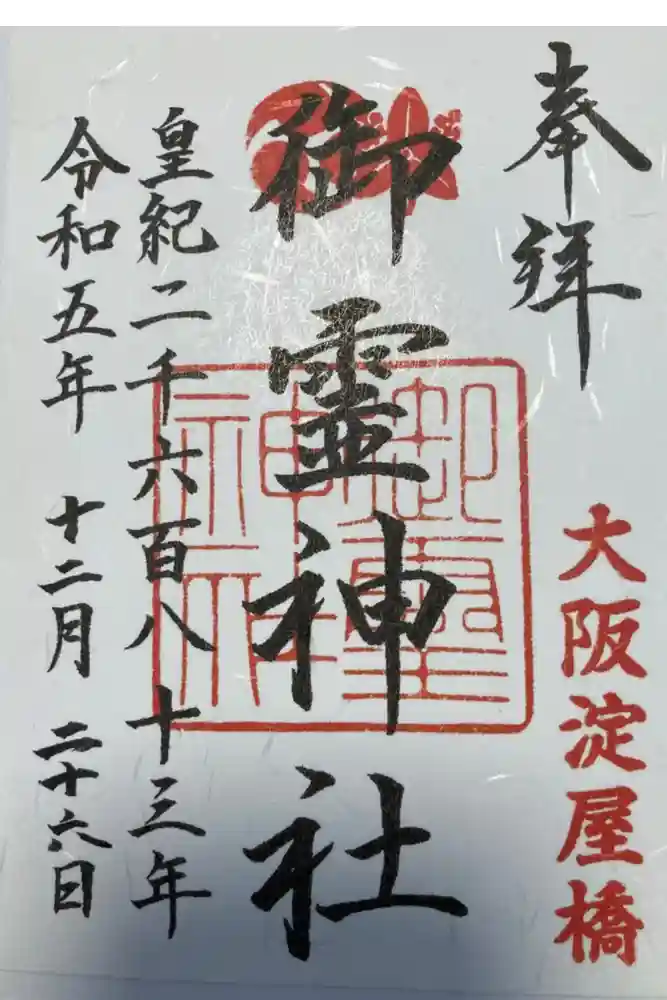 奉拝
大阪淀屋橋
御霊神社
御霊
神社
皇紀二千六百八十三年
令和五年 十二月 二十六日